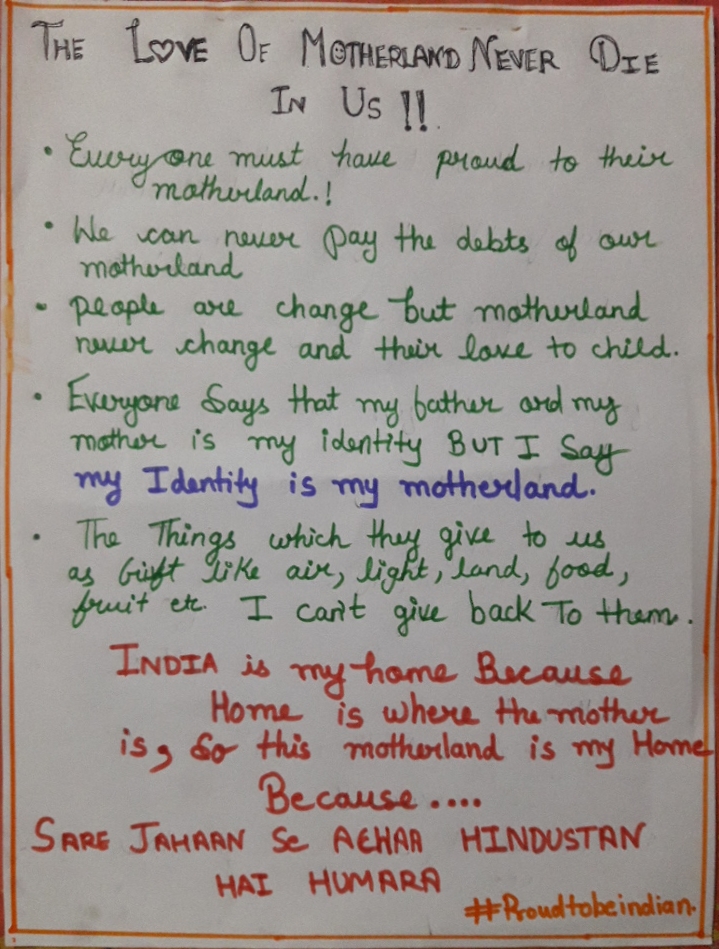 THE LOVE OF MOTHERLAND NEVER DIE
IN US !!
• Everyone must have proud to their
motherland.!
• We can never pay the debts of our
motherland
• people are change but motherland
never change and their love to child.
• Everyone Says that my father and my
mother is my identity BUT I Say
my Identity is my motherland.
• The Things which they give to us
as Gift like air, light, land, food,
fruit etc. I can't give back To them.
INDIA is my home Because
Home is where the mother
is, So this motherland is my Home
Because....
SARE JAHAAN Se ACHAA HINDUSTAN
HAI HUMARA
#Proudtobeindian.